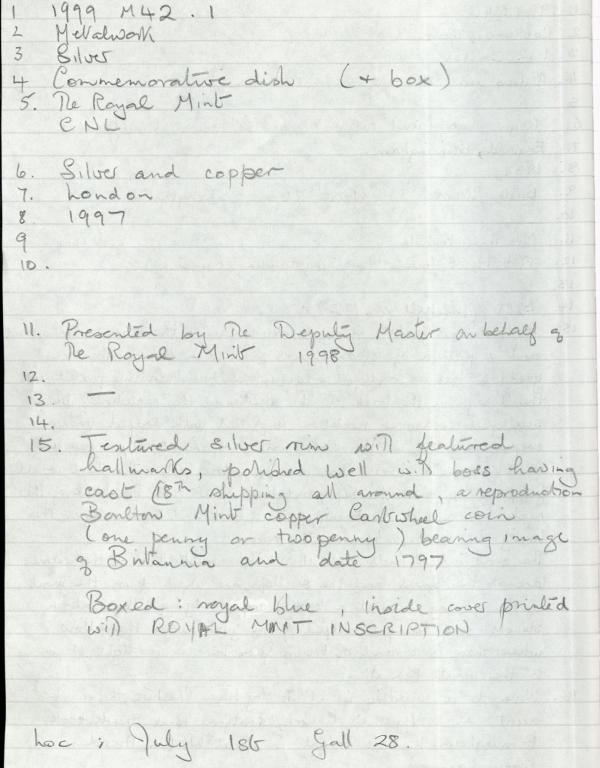 1 1999 M42.1
2 Metalwork
3 Silver
4 Commemorative dish (+ box)
5. The Royal Mint
CNL
6. Silver and copper
7. London
8 1997
9
10.
11. Presented by The Deputy Master on behalf of
The Royal Mint 1998
12.
13 —
14.
15. Textured silver rim with featured
hallmarks, polished well with boss having
cast 18th shipping all around, a reproduction
Boulton Mint copper Cartwheel coin
(one penny or twopenny) bearing image
of Britannia and date 1797
Boxed: royal blue, inside cover printed
with ROYAL MINT INSCRIPTION
Loc: July 1st Gall 28.